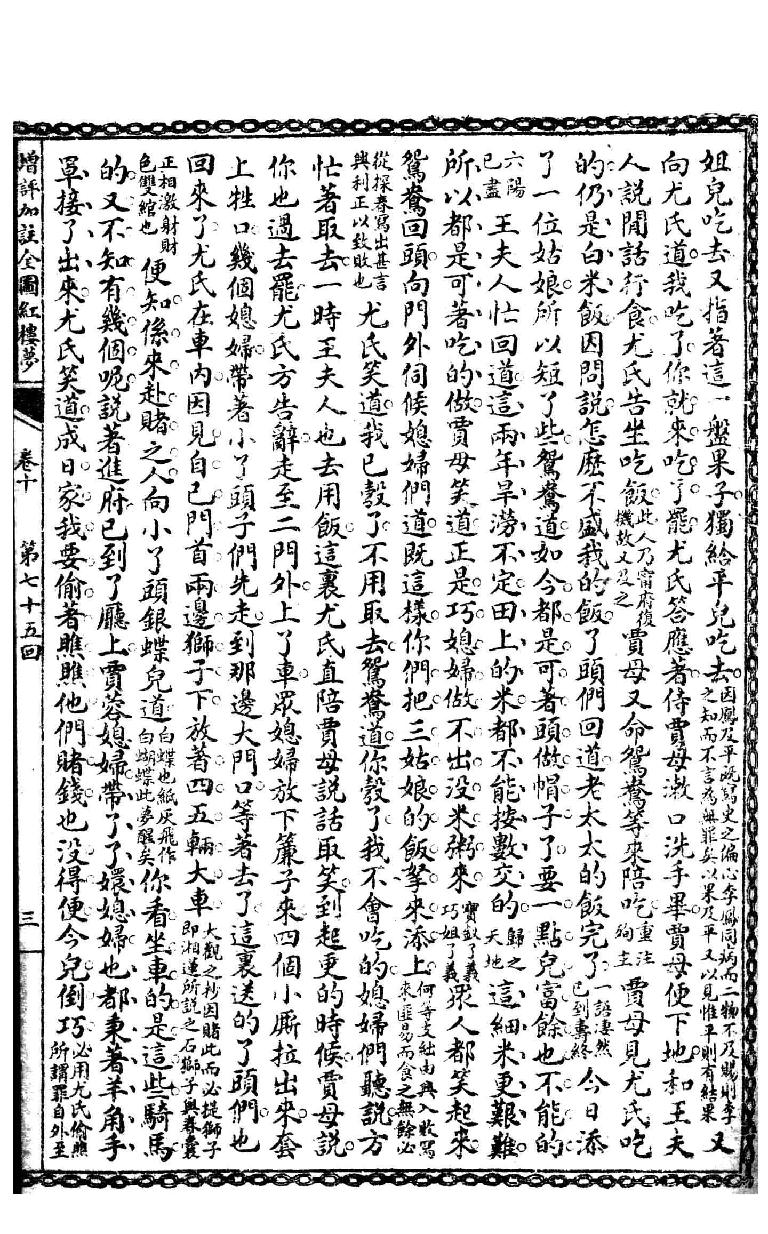 姐兒吃去又指著這一盤果子獨給平兒吃去因鳳及平既寫史之偏心李鳳同病而二物不及賜則李之知而不言為無罪矣以果及平又以見惟平則有結果又
向尤氏道我吃了你就來吃了罷尤氏答應著侍賈母漱口洗手畢賈母便下地和王夫
人說閒話行食尤氏告坐吃飯此人乃甯府後機故又及之賈母又命鴛鴦等來陪吃重注殉主賈母見尤氏吃
的仍是白米飯因問說怎麽不盛我的飯了頭們回道老太太的飯完了一語凄然已到壽終今日添
了一位姑娘所以短了些鴛鴦道如今都是可著頭做帽子了要一點兒富餘也不能的
六陽已盡王夫人忙回道這兩年旱澇不定田上的米都不能按數交的歸之天地這細米更艱難
所以都是可著吃的做賈母笑道正是巧媳婦做不出没米粥來寶釵了義巧姐了義眾人都笑起來
鴛鴦回頭向門外伺候媳婦們道既這樣你們把三姑娘的飯拏來添上何等支絀由興入敗寫來匪易而食之無餘必
從探春寫出甚言興利正以致敗也尤氏笑道我已彀了不用取去鴛鴦道你彀了我不會吃的媳婦們聽說方
忙著取去一時王夫人也去用飯這裏尤氏直陪賈母說話取笑到起更的時候賈母說
你也過去罷尤氏方告辭走至二門外上了車眾媳婦放下簾子來四個小厮拉出來套
上牲口幾個媳婦帶著小了頭子們先走到那邊大門口等著去了這裏送的了頭們也
回來了尤氏在車內因見自己門首兩邊獅子下放著四五輛大車大觀之抄因賭此而必提獅子即湘蓮所說之石獅子與春囊
正相激射財色雙綰也便知係來赴賭之人向小了頭銀蝶兒道白蝶也紙灰飛作白蝴蝶此夢醒矣你看坐車的是這些騎馬
的又不知有幾個呢說著進府已到了廳上賈蓉媳婦帶了了嬛媳婦也都秉著羊角手
罩接了出來尤氏笑道成日家我要偷著瞧瞧他們賭錢也没得便今兒倒巧必用尤氏偷瞧所謂罪自外至
增評加註全圖紅樓夢
卷十
第七十五回
三